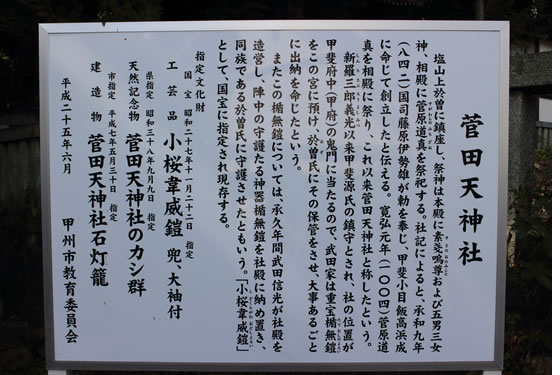 菅田天神社
塩山上於曽に鎮座し、祭神は本殿に素戔嗚尊および五男三女
神、相殿に菅原道真を祭祀する。社記によると、承和九年
(八四二)国司藤原伊勢雄が勅を奉じ、甲斐小目飯高浜成
に命じて創立したと伝える。寛弘元年(一〇〇四)菅原道
真を相殿に祭り、これ以来菅田天神社と称したという。
新羅三郎義光以来甲斐源氏の鎮守とされ、社の位置が
甲斐府中(甲府)の鬼門に当たるので、武田家は重宝楯無鎧
をこの宮に預け、於曽氏にその保管をさせ、大事あるごと
に出納を命じたという。
またこの楯無鎧については、承久年間武田信光が社殿を
造営し、陣中の守護たる神器楯無鎧を社殿に納め置き、
同族である於曽氏に守護させたともいう。「小桜韋威鎧」
として、国宝に指定され現存する。
指定文化財
国宝 昭和二十七年十一月二十二日 指定
工芸品 小桜韋威鎧 兜、大袖付
県指定 昭和三十八年九月九日 指定
天然記念物 菅田天神社のカシ群
市指定 平成七年五月三十日 指定
建造物 菅田天神社石灯籠
平成二十五年六月 甲州市教育委員会